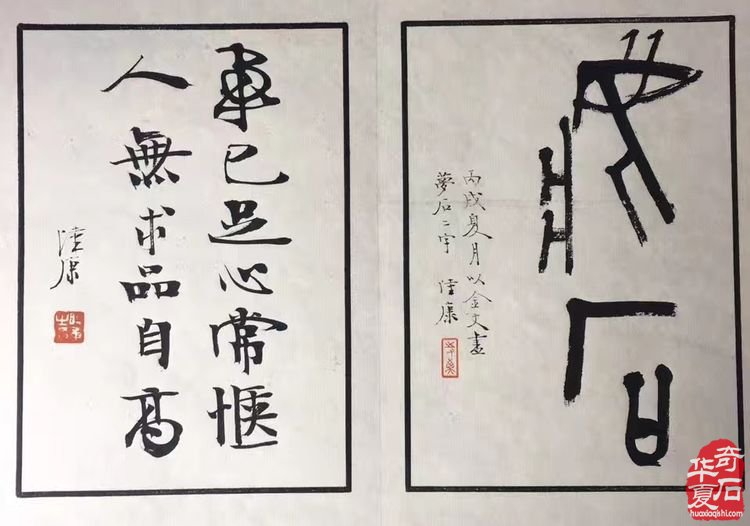 夢石
丙戌夏月以金文畫
夢石二字 陸康
事已足心常惬
人無求品自高
陸康
华夏奇石
huaxiaqishi.com